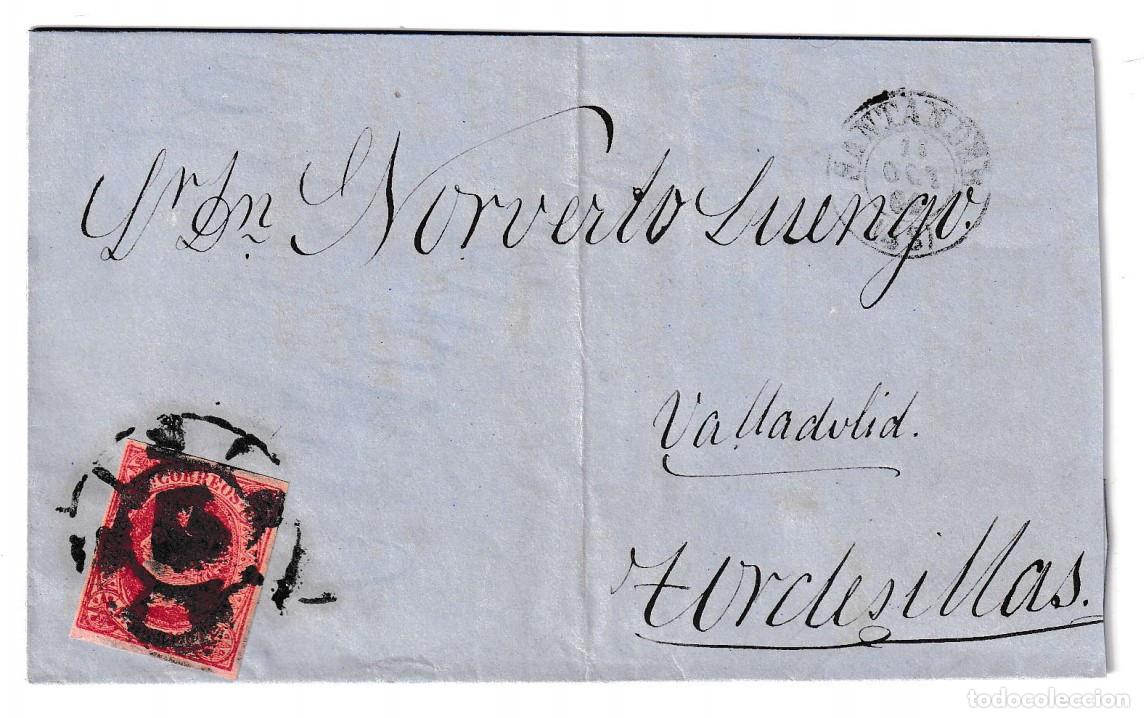 SANTANDER
OCT
Sr Dn Norverto Luengo.
Valladolid.
Tordesillas.
CORREOS
todocoleccion